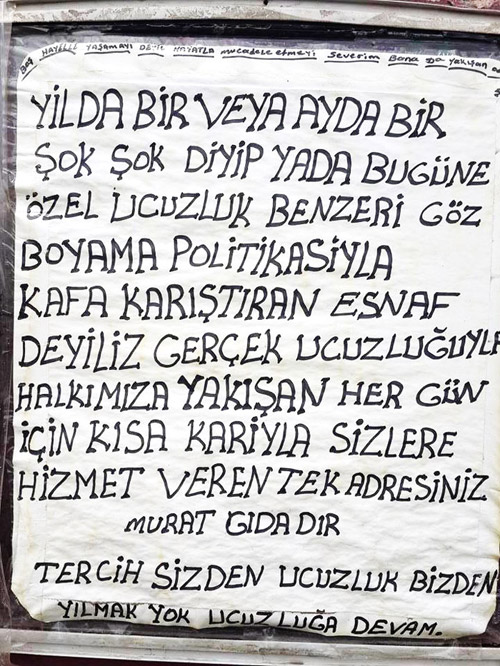 BOŞ HAYELLE YAŞAMAYI DEĞİL HAYATLA mücadele etmeyi Severim Bana Da yakışan
YİLDA BİR VEYA AYDA BİR
ŞOK ŞOK DİYİP YADA BUGÜNE
ÖZEL UCUZLUK BENZERİ GÖZ
BOYAMA POLİTİKASİYLA
KAFA KARIŞTIRAN ESNAF
DEYİLİZ GERÇEK UCUZLUĞUYLA
HALKIMIZA YAKIŞAN HER GÜN
İÇİN KISA KARİYLA SİZLERE
HİZMET VEREN TEK ADRESİNİZ
MURAT GIDA DIR
TERCİH SİZDEN UCUZLUK BİZDEN
YILMAK YOK UCUZLUĞA DEVAM.